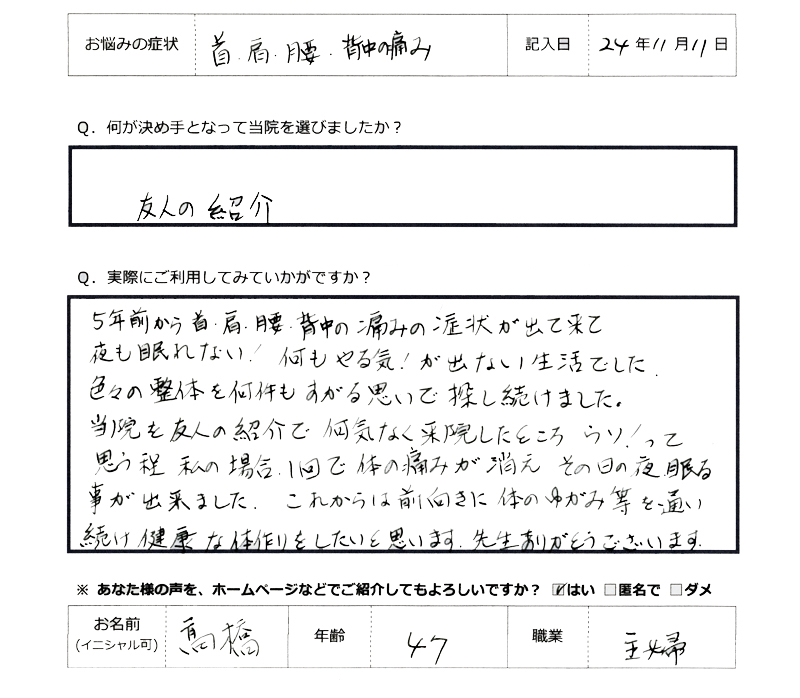 お悩みの症状 首.肩.腰.背中の痛み 記入日 24年11月11日
Q. 何が決め手となって当院を選びましたか？
友人の紹介
Q. 実際にご利用してみていかがですか？
5年前から首.肩.腰.背中の痛みの症状が出て来て
夜も眠れない! 何もやる気!が出ない生活でした.
色々の整体を何件もすがる思いで探し続けました。
当院を友人の紹介で何気なく来院したところ ウソ!って
思う程 私の場合.1回で体の痛みが消え その日の夜眠る
事が出来ました. これからは前向きに体のゆがみ等を通い
続け健康な体作りをしたいと思います.先生ありがとうございます.
※ あなた様の声を、ホームページなどでご紹介してもよろしいですか？ ☑はい □匿名で □ダメ
お名前 (イニシャル可) 高橋 年齢 47 職業 主婦